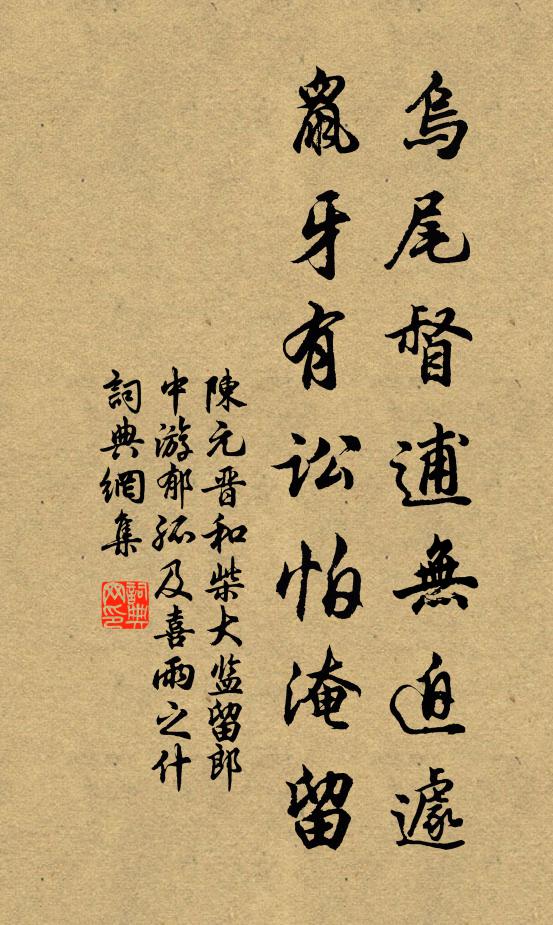 烏尾督逋無迫遽
鼠牙有訟怕淹留
陳元晋和柴大监留郎
中游郁孤及喜雨之什
詞典網集
詞典
网印